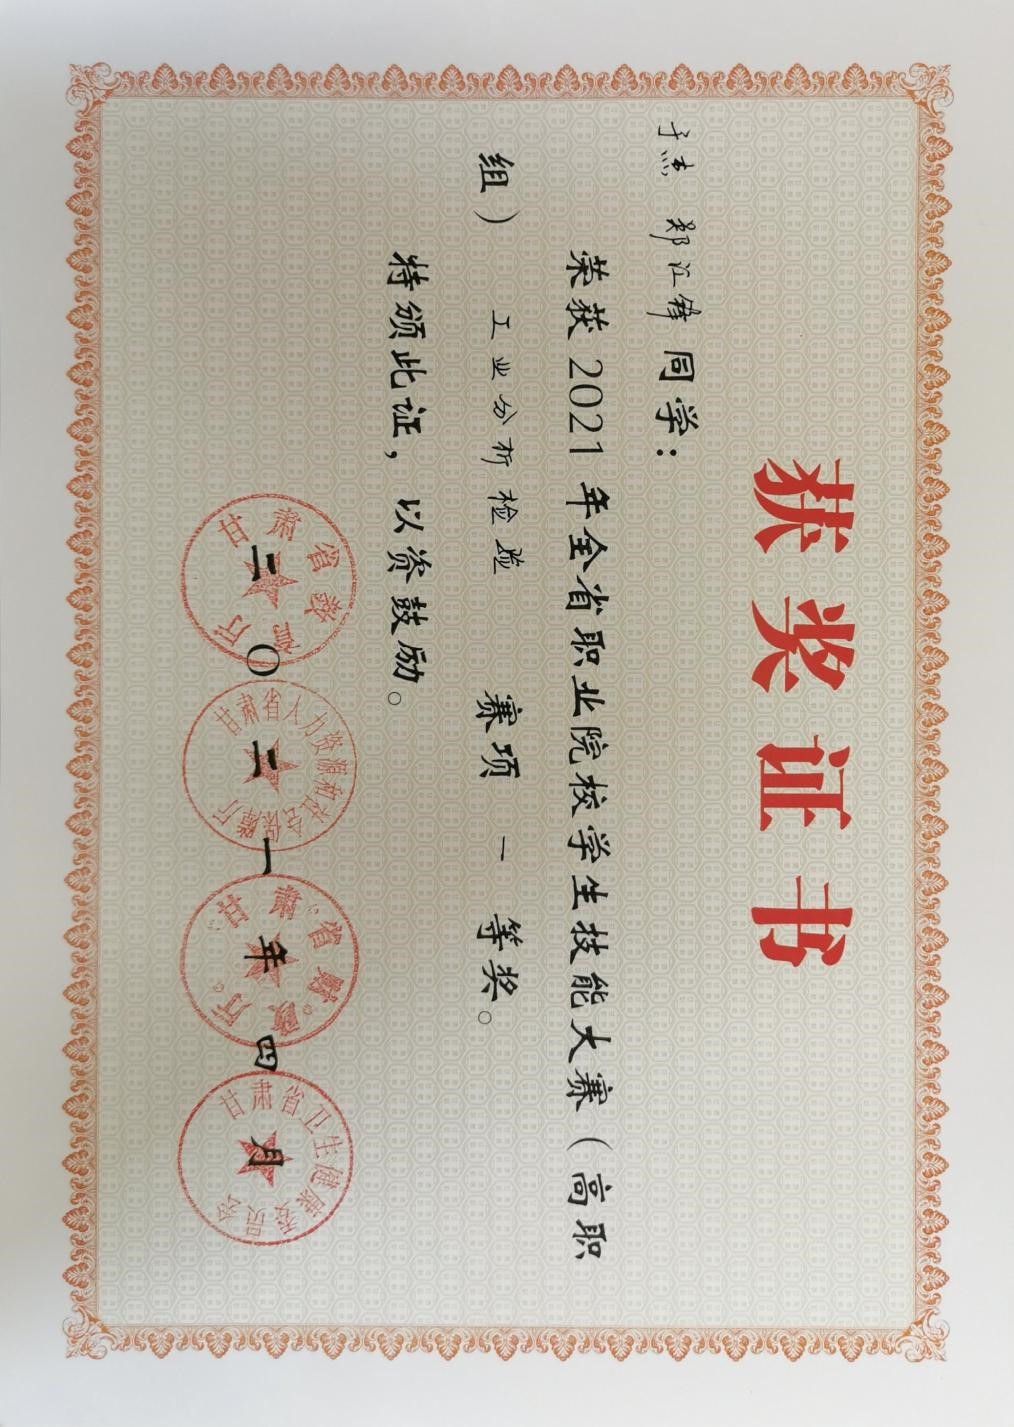 获奖证书
于杰 郑江锋 同学：
荣获2021年全省职业院校学生技能大赛（高职
组） 工业分析检验 赛项 一 等奖。
特颁此证，以资鼓励。
甘肃省教育厅
甘肃省人力资源和社会保障厅
甘肃省财政厅
甘肃省卫生健康委员会
二〇二一年四月